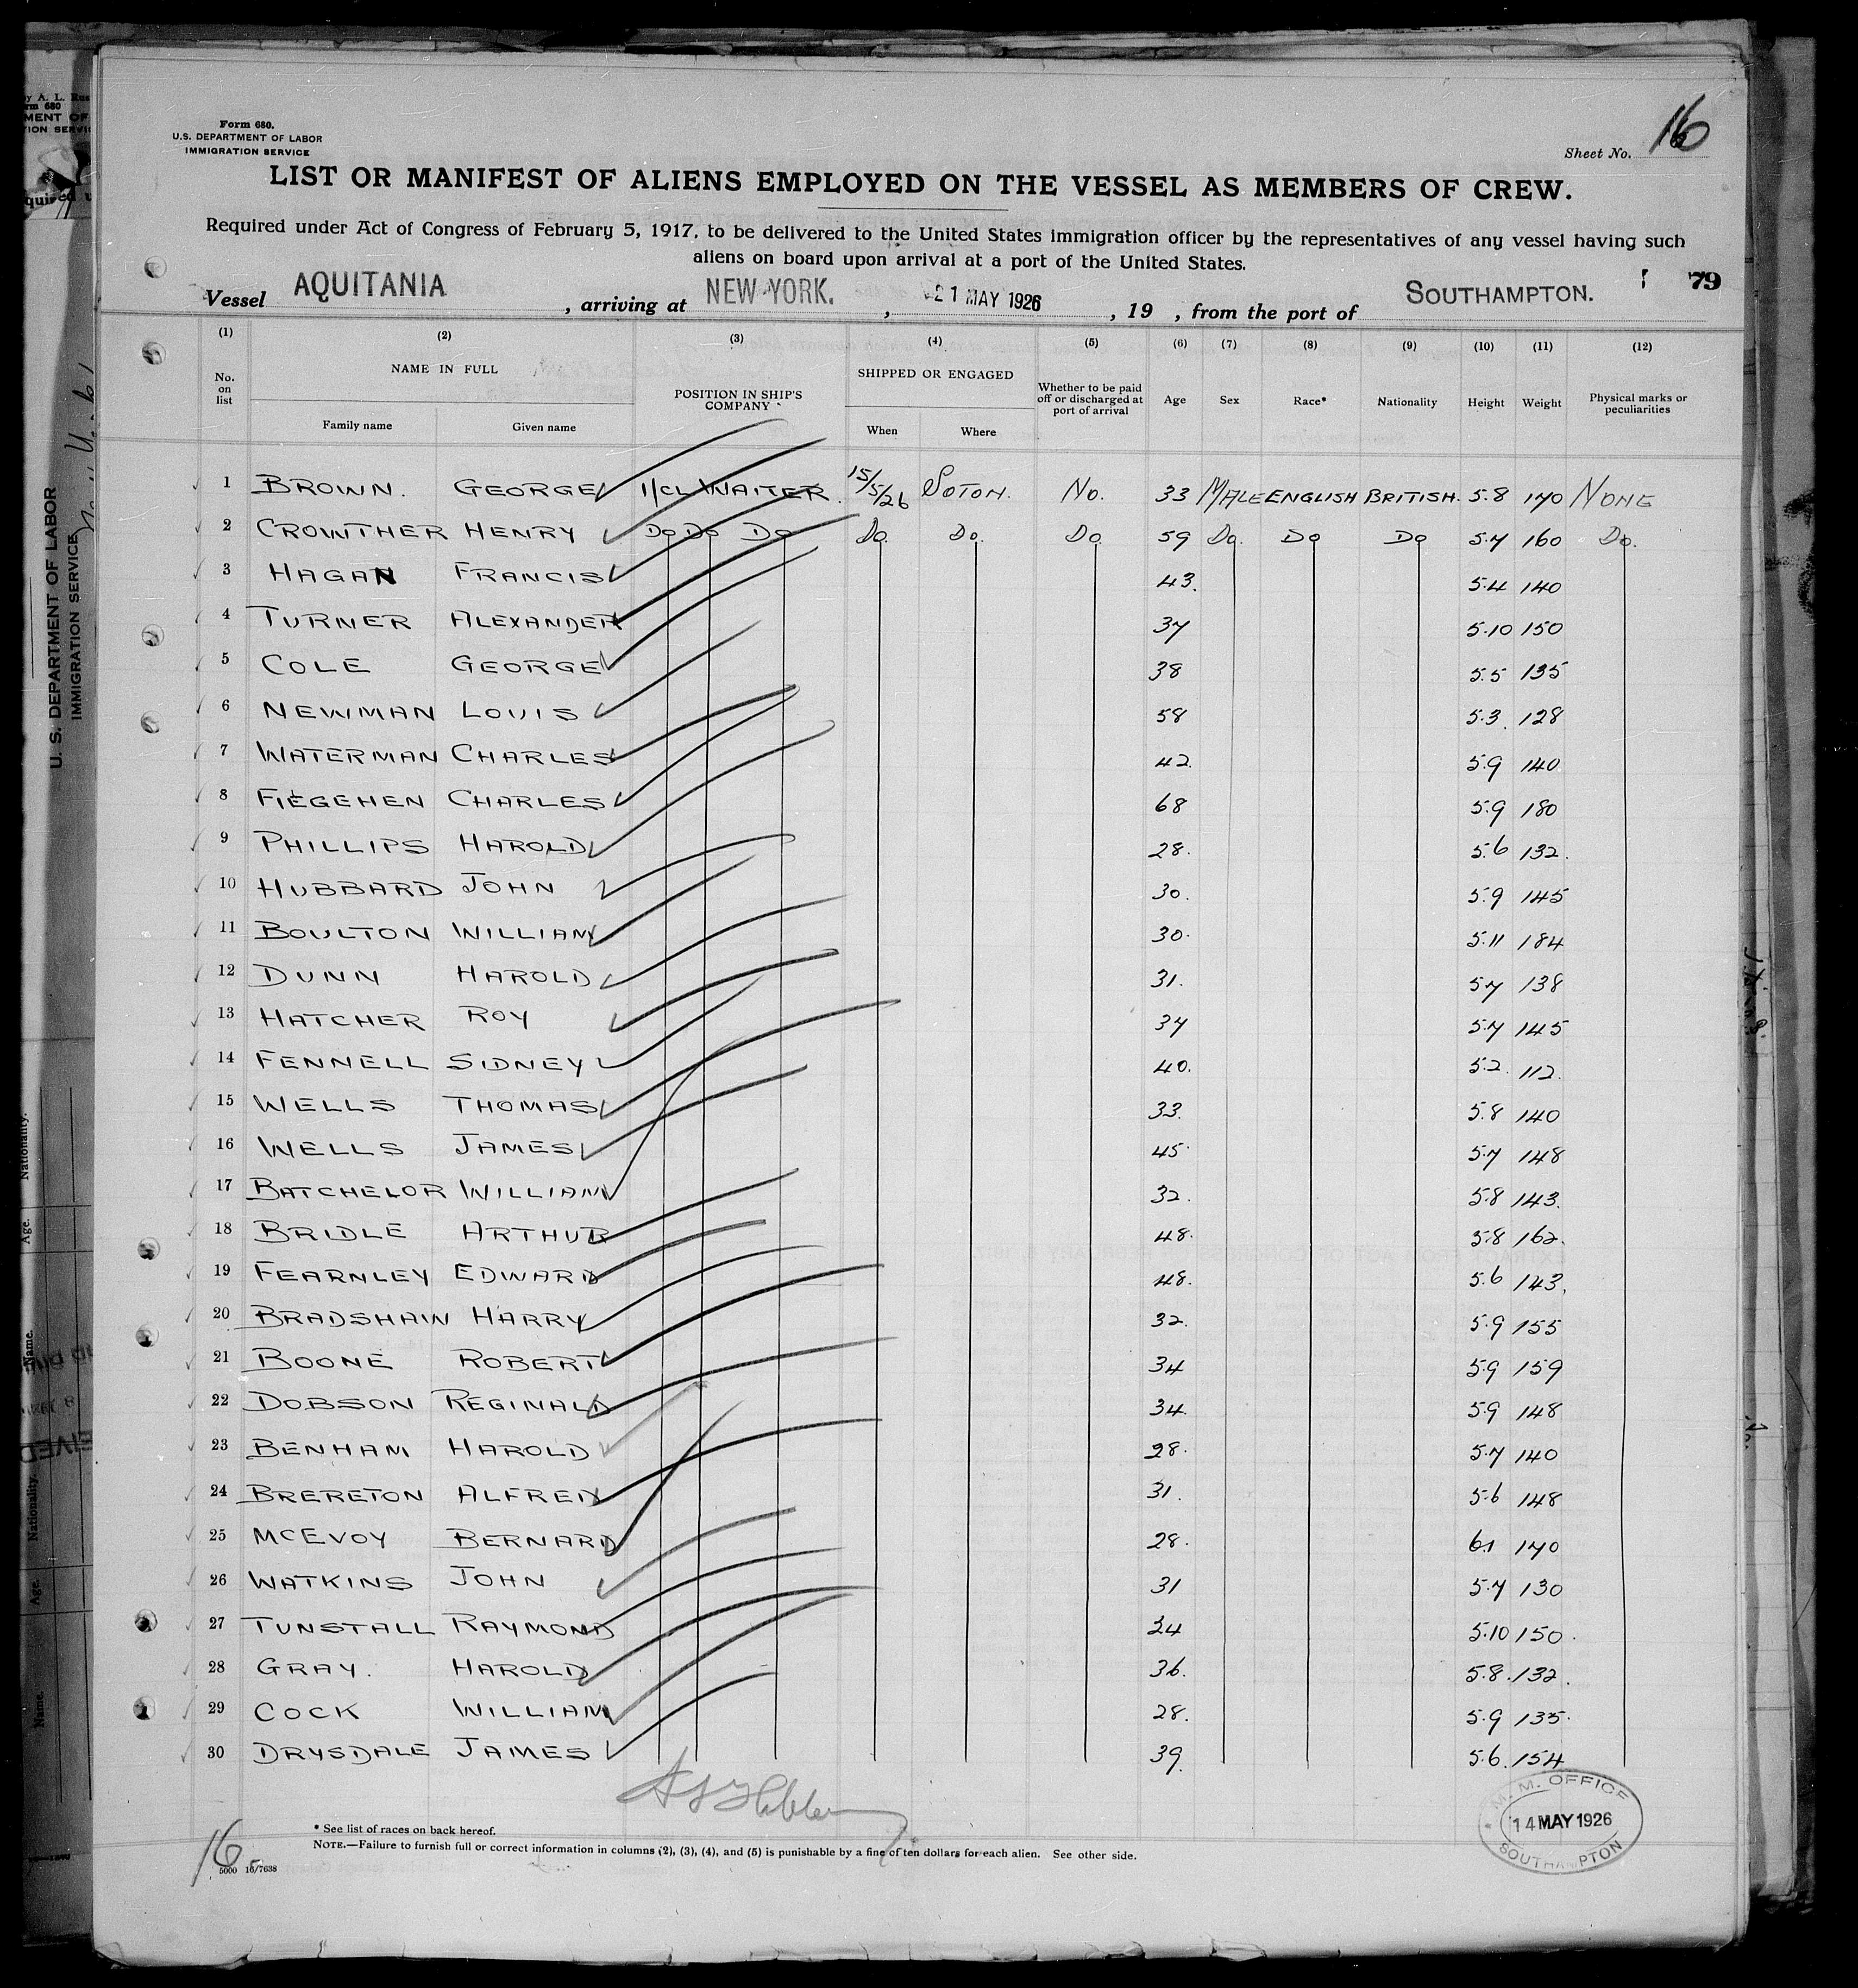 Form 680.
U.S. DEPARTMENT OF LABOR
IMMIGRATION SERVICE
Sheet No. 16
LIST OR MANIFEST OF ALIENS EMPLOYED ON THE VESSEL AS MEMBERS OF CREW.
Required under Act of Congress of February 5, 1917, to be delivered to the United States immigration officer by the representatives of any vessel having such
aliens on board upon arrival at a port of the United States.
79
Vessel AQUITANIA, arriving at NEW-YORK., 21 MAY 1926, 19 , from the port of SOUTHAMPTON.
(1) (2) (3) (4) (5) (6) (7) (8) (9) (10) (11) (12)
No. on list NAME IN FULL POSITION IN SHIP'S COMPANY SHIPPED OR ENGAGED Whether to be paid off or discharged at port of arrival Age Sex Race* Nationality Height Weight Physical marks or peculiarities
Family name Given name When Where
1 BROWN. GEORGE 1/CL WAITER. 15/5/26 SOTON. NO. 33 MALE ENGLISH BRITISH. 5.8 170 NONE
2 CROWTHER HENRY DO DO DO DO. DO. DO. 59 DO. DO DO 5.7 160 DO.
3 HAGAN FRANCIS 43. 5.4 140
4 TURNER ALEXANDER 37 5.10 150
5 COLE GEORGE 38 5.5 135
6 NEWMAN LOUIS 58 5.3. 128
7 WATERMAN CHARLES 42. 5.9 140
8 FIEGEHEN CHARLES 68 5.9 180
9 PHILLIPS HAROLD 28. 5.6 132.
10 HUBBARD JOHN 30. 5.9 145
11 BOULTON WILLIAM 30. 5.11 184
12 DUNN HAROLD 31. 5.7 138
13 HATCHER ROY 37 5.7 145
14 FENNELL SIDNEY 40. 5.2. 112.
15 WELLS THOMAS 33. 5.8 140
16 WELLS JAMES 45. 5.7 148
17 BATCHELOR WILLIAM 32. 5.8 143.
18 BRIDLE ARTHUR 48. 5.8 162.
19 FEARNLEY EDWARD 48. 5.6 143.
20 BRADSHAW HARRY 32. 5.9 155
21 BOONE ROBERT 34 5.9 159
22 DOBSON REGINALD 34. 5.9 148
23 BENHAM HAROLD 28. 5.7 140
24 BRERETON ALFRED 31. 5.6 148
25 MCEVOY BERNARD 28. 6.1 170
26 WATKINS JOHN 31 5.7 130
27 TUNSTALL RAYMOND 24 5.10 150.
28 GRAY. HAROLD 36. 5.8. 132.
29 COCK WILLIAM 28. 5.9 135.
30 DRYSDALE JAMES 39. 5.6. 154
M.M. OFFICE
14 MAY 1926
SOUTHAMPTON
* See list of races on back hereof.
NOTE.—Failure to furnish full or correct information in columns (2), (3), (4), and (5) is punishable by a fine of ten dollars for each alien. See other side.
16
5000 16/7638
U. S. DEPARTMENT OF LABOR
IMMIGRATION SERVICE
Nationality.
Age.
Name.
Nationality.
Age.
Name.